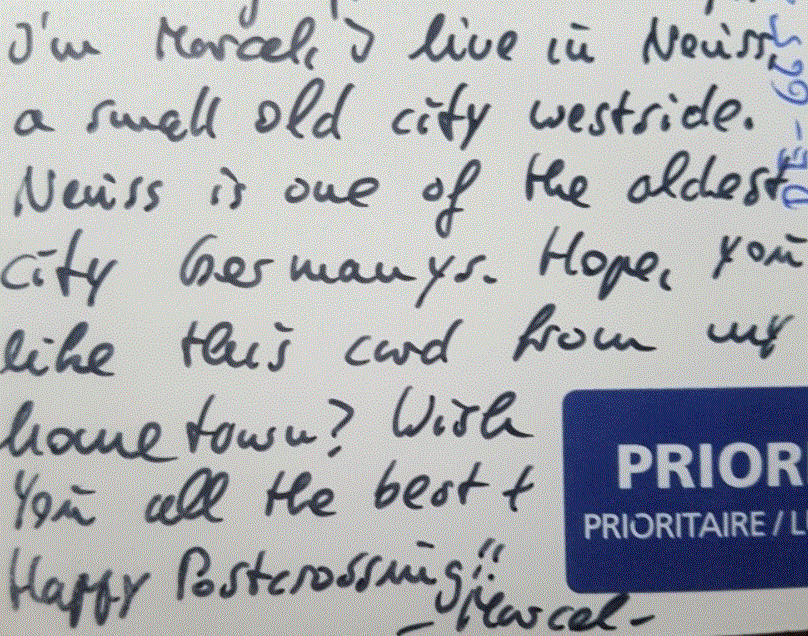 I'm Marcel, I live in Neuss,
a small old city westside.
Neuss is one of the oldest
city Germanys. Hope, you
like this card from my
hometown? Wish
You all the best +
Happy Postcrossing!!
-Marcel-
PRIOR
PRIORITAIRE / L
DE-665